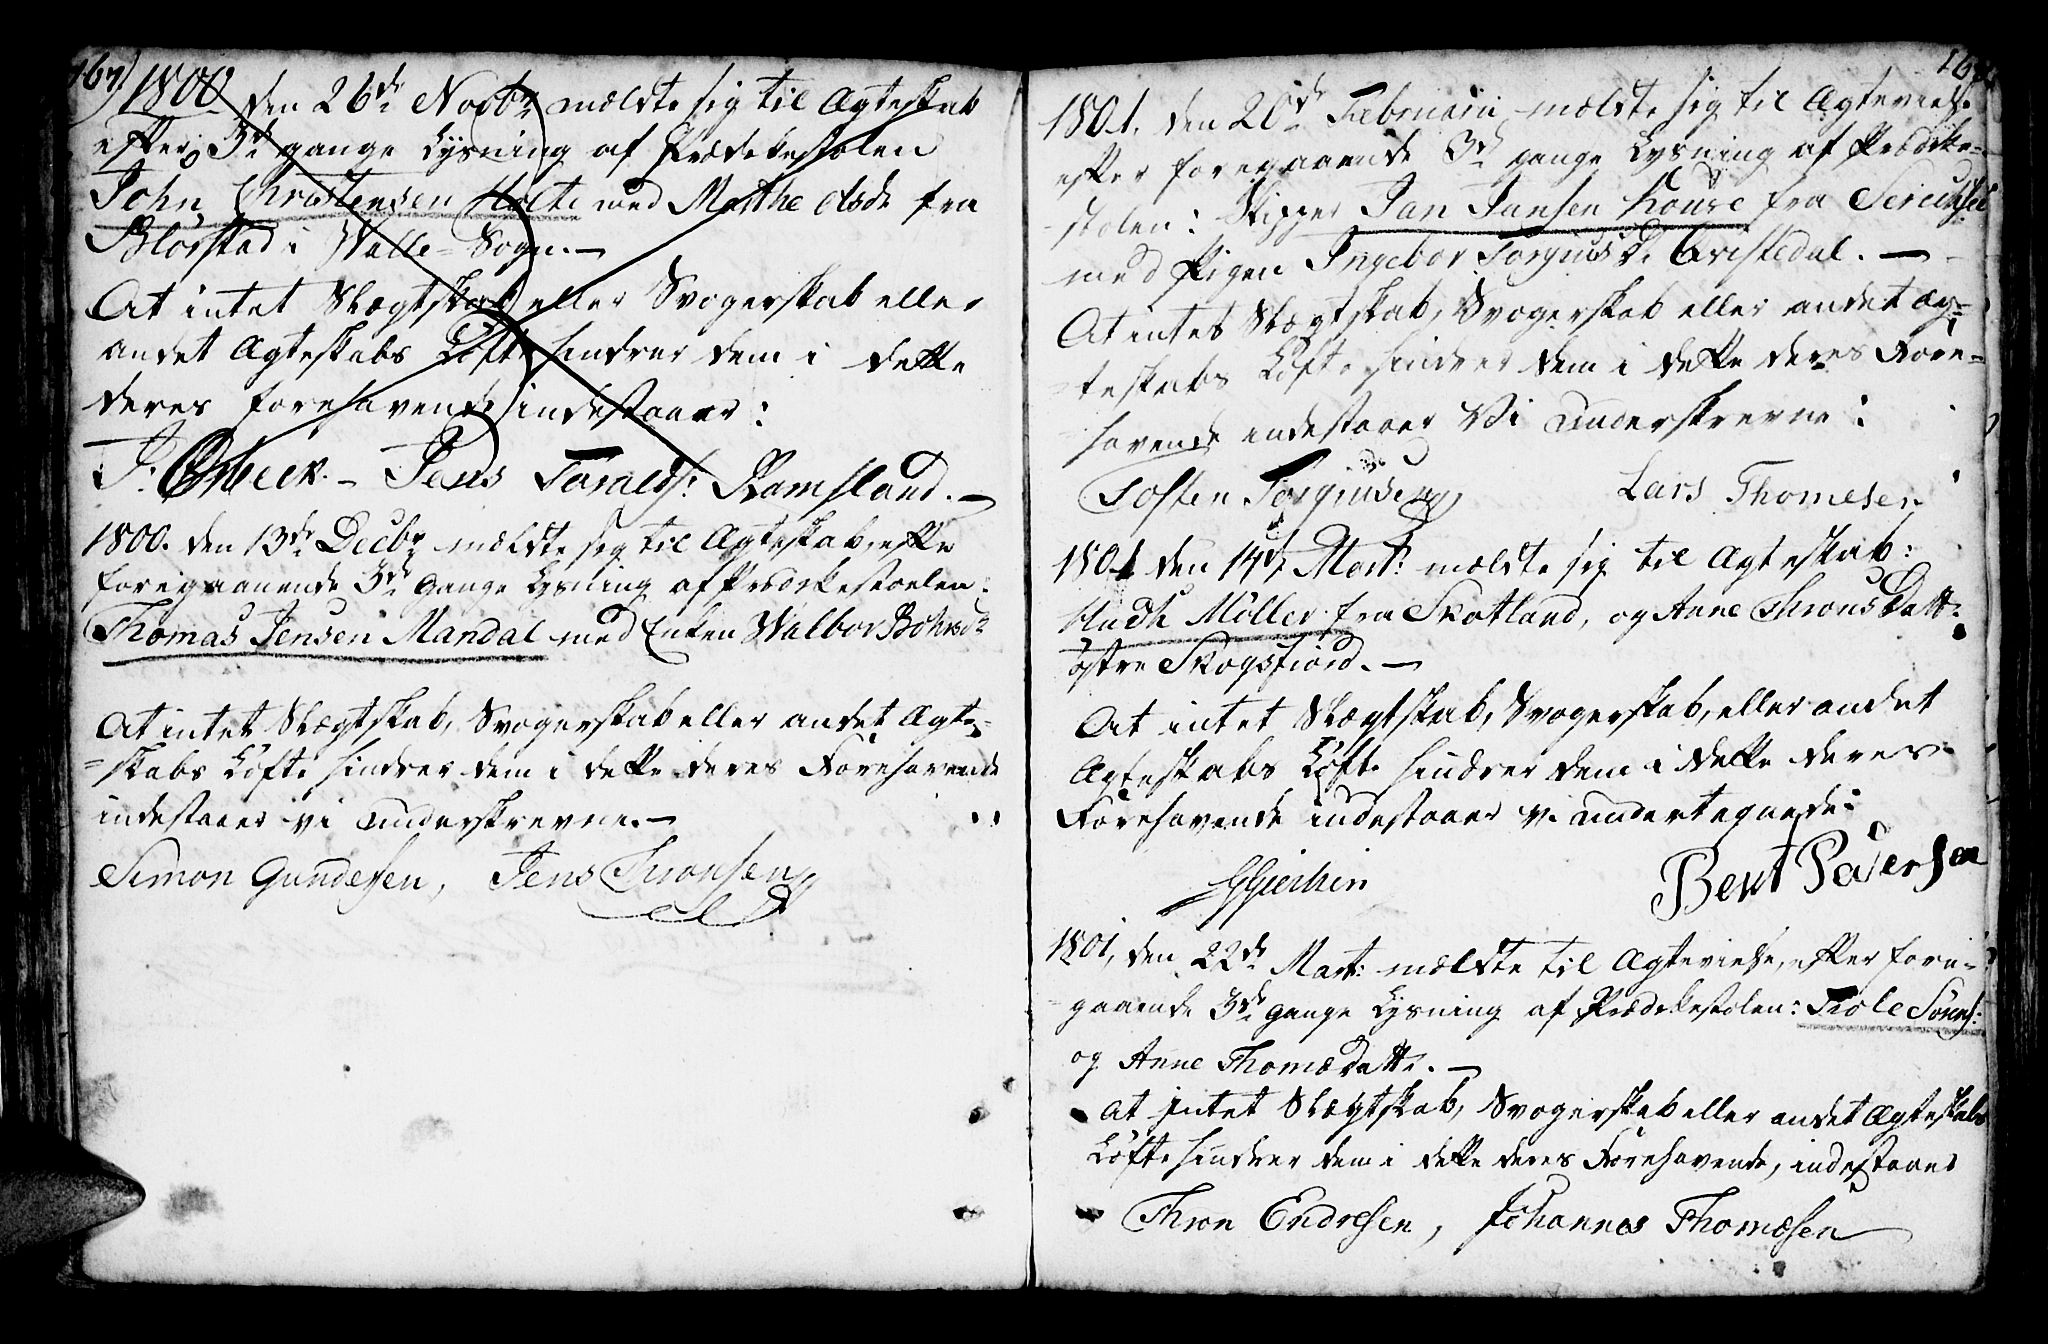 167)
1800 den 26de Novbr mældte sig til Ægteskab
efter 3de gange Lysning af Prædikestolen
John Christensen Holte med Marthe Olsdr fra
Blørstad i Walle-Sogn. —
At intet Slægtskab eller Svogerskab eller
andet Ægteskabs Løfte hindrer dem i dette
deres forehavende indestaaer:
J. Orbeck. – Jens Taralds: Ramsland. —
1800. den 13de Decbr mældte sig til Ægteskab, efter
foregaaende 3de Gange Lysning af Prædikestoelen:
Thomas Jensen Mandal med Enken Walbor
At intet Slægtskab, Svogerskab eller andet Ægte=
=skabs Løfte hindrer dem i dette deres Forehavende
indestaaer vi underskrevne. —
Simon Gundesen, Jens Thronsen
1801. den 20de Februarii mældte sig til Ægtevielse
efter foregaaende 3de gange Lysning af Prædike-
stolen: Skipper Jan Jansen Kouse fra
med Pigen Ingebor Torgiusdr.
At intet Slægtskab, Svogerskab eller andet Æg=
=teskabs Løfte hindrer dem i dette deres Fore=
havende indestaaer Vi underskrevne:
Tosten Torgiusen Lars Thomesen
1801 den 14de Mart: mældte sig til Ægteskab:
Møller fra Skotland, og Anne Throns Datt:
østre Skogsfiord. —
At intet Slægtskab, Svogerskab, eller andet
Ægteskabs Løfte hindrer dem i dette deres
Forehavende indestaaer vi undertegnede:
Bent Pedersen
1801, den 22de Mart: mældte til Ægtevielse, efter fore=
gaaende 3de gange Lysning af Prædikestolen: Tiole Sørens:
og Anne Thomædatter. —
At intet Slægtskab, Svogerskab eller andet Ægteskabs
Løfte hindrer dem i dette deres Forehavende, indestaaer
Thron Endresen, Johannes Thomæsen